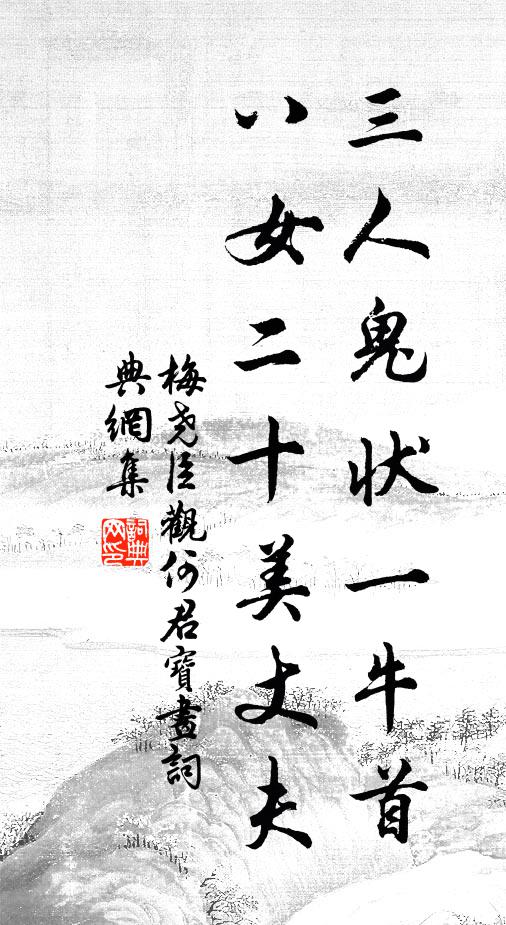 三人鬼状一牛首
八女二十美丈夫
梅尧臣觀何君寶畫詞
典網集
詞典
网印